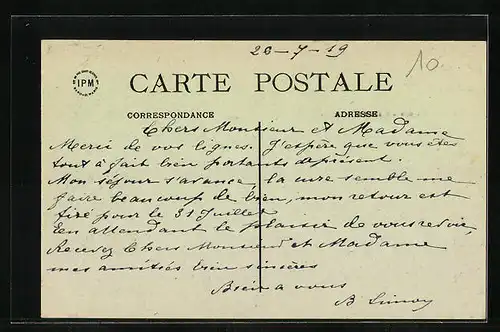 20-7-19
10
IPM
CARTE POSTALE
CORRESPONDANCE
ADRESSE
Chers Monsieur et Madame
Merci de vos lignes. J'espère que vous êtes
tout à fait bien portants à présent.
Mon séjour s'avance, la cure semble me
faire beaucoup de bien, mon retour est
fixé pour le 31 Juillet.
En attendant le plaisir de vous revoir,
Recevez Chers Monsieur et Madame
mes amitiés bien sincères
Bien a vous
B